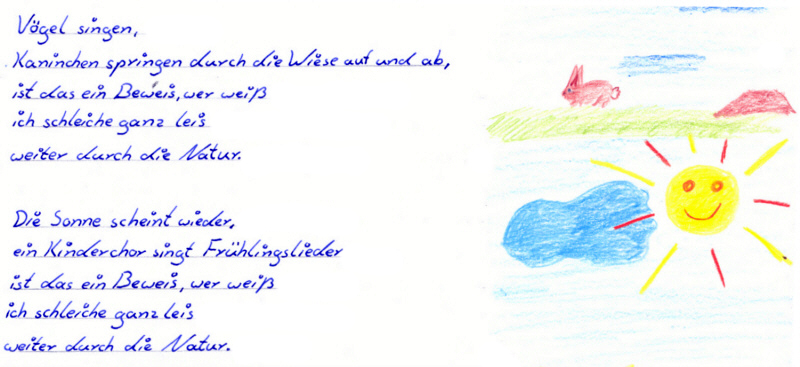 Vögel singen,
Kaninchen springen durch die Wiese auf und ab,
ist das ein Beweis, wer weiß
ich schleiche ganz leis
weiter durch die Natur.
Die Sonne scheint wieder,
ein Kinderchor singt Frühlingslieder
ist das ein Beweis, wer weiß
ich schleiche ganz leis
weiter durch die Natur.